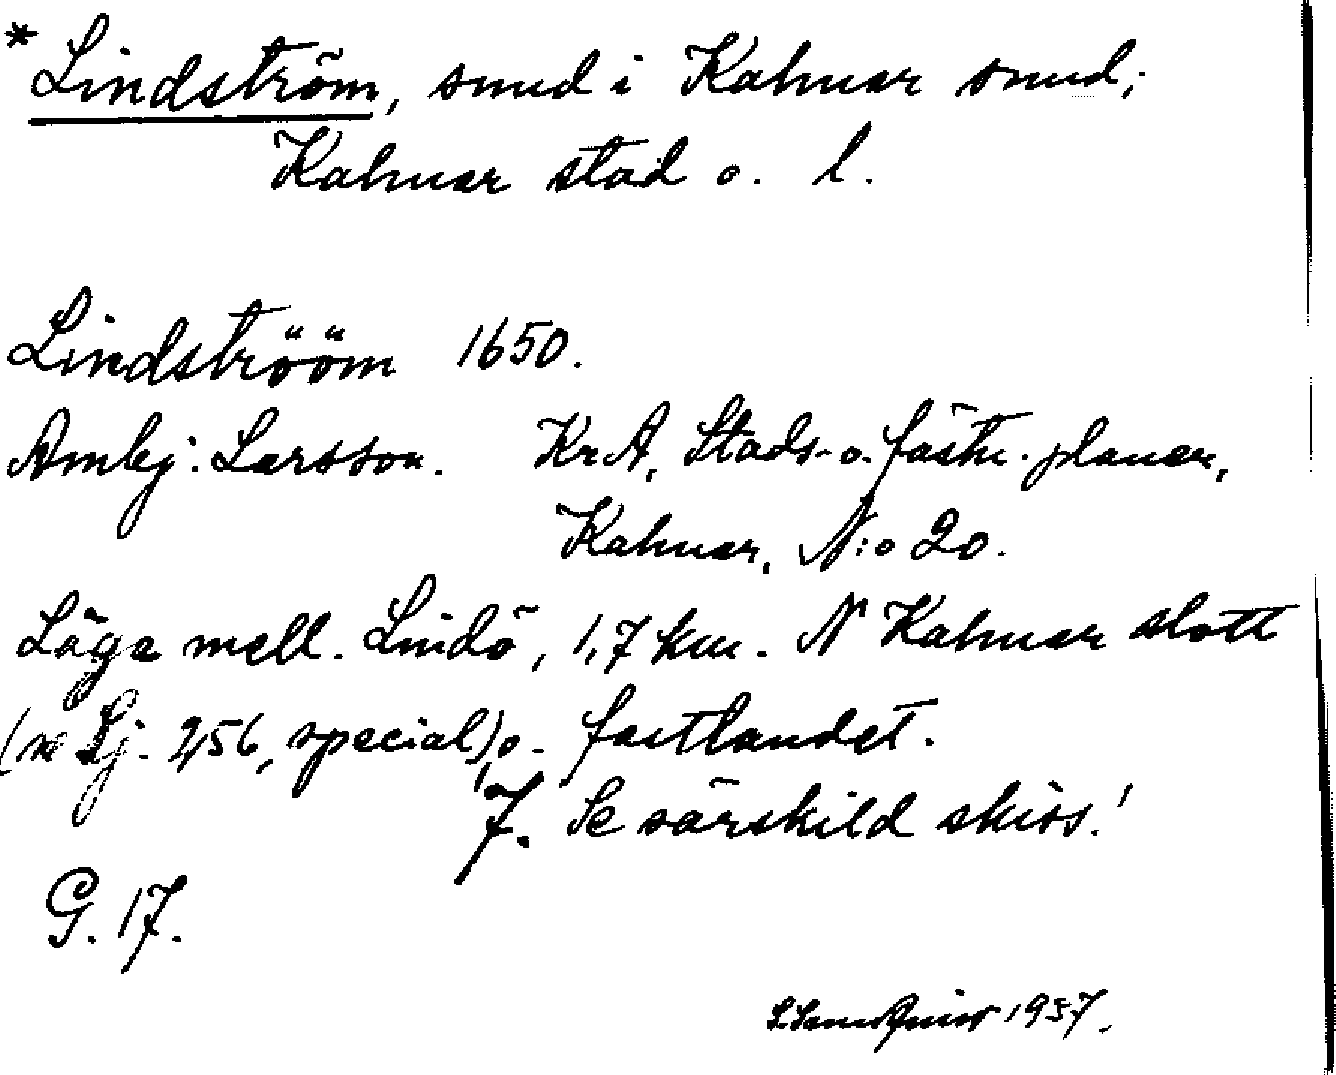 *Lindström, sund i Kalmar sund;
Kalmar stad o. l.
Lindströöm 1650.
Ambj. Larsson. KrA, Stads- o. fästn. planer,
Kalmar, N:o 20.
Läge mell. Lindö, 1,7 km. N Kalmar slott
(se Lj. 256, special), o. fastlandet.
7. Se särskild skiss!
G. 17.
1937.